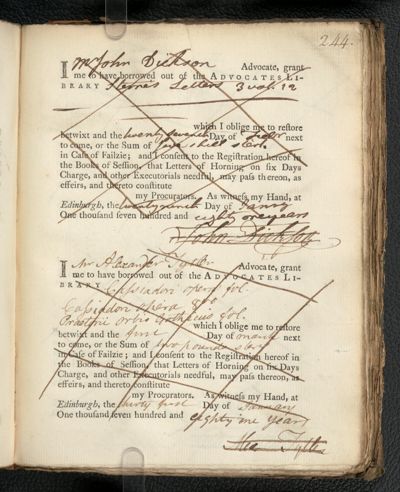 244.
I Mr John Dickson Advocate, grant
me to have borrowed out of the ADVOCATES LI-
BRARY Sternes Letters 3 vol. 12
which I oblige me to restore
betwixt and the twenty seventh Day of next
to come, or the Sum of five shill ster.
in Case of Failzie; and I consent to the Registration hereof in
the Books of Session, that Letters of Horning on six Days
Charge, and other Executorials needful, may pass thereon, as
effeirs, and thereto constitute
my Procurators. As witness my Hand, at
Edinburgh, the twenty Day of Janry
One thousand seven hundred and eighty one years
John Dickson
I Mr Alexander Tytler Advocate, grant
me to have borrowed out of the ADVOCATES LI-
BRARY Cassiodori opera fol.
opera 8vo
orbis fol.
which I oblige me to restore
betwixt and the first Day of march next
to come, or the Sum of two pounds ster
in Case of Failzie; and I consent to the Registration hereof in
the Books of Session, that Letters of Horning on six Days
Charge, and other Executorials needful, may pass thereon, as
effeirs, and thereto constitute
my Procurators. As witness my Hand, at
Edinburgh, the thirty first Day of January
One thousand seven hundred and eighty one years
Alex Tytler